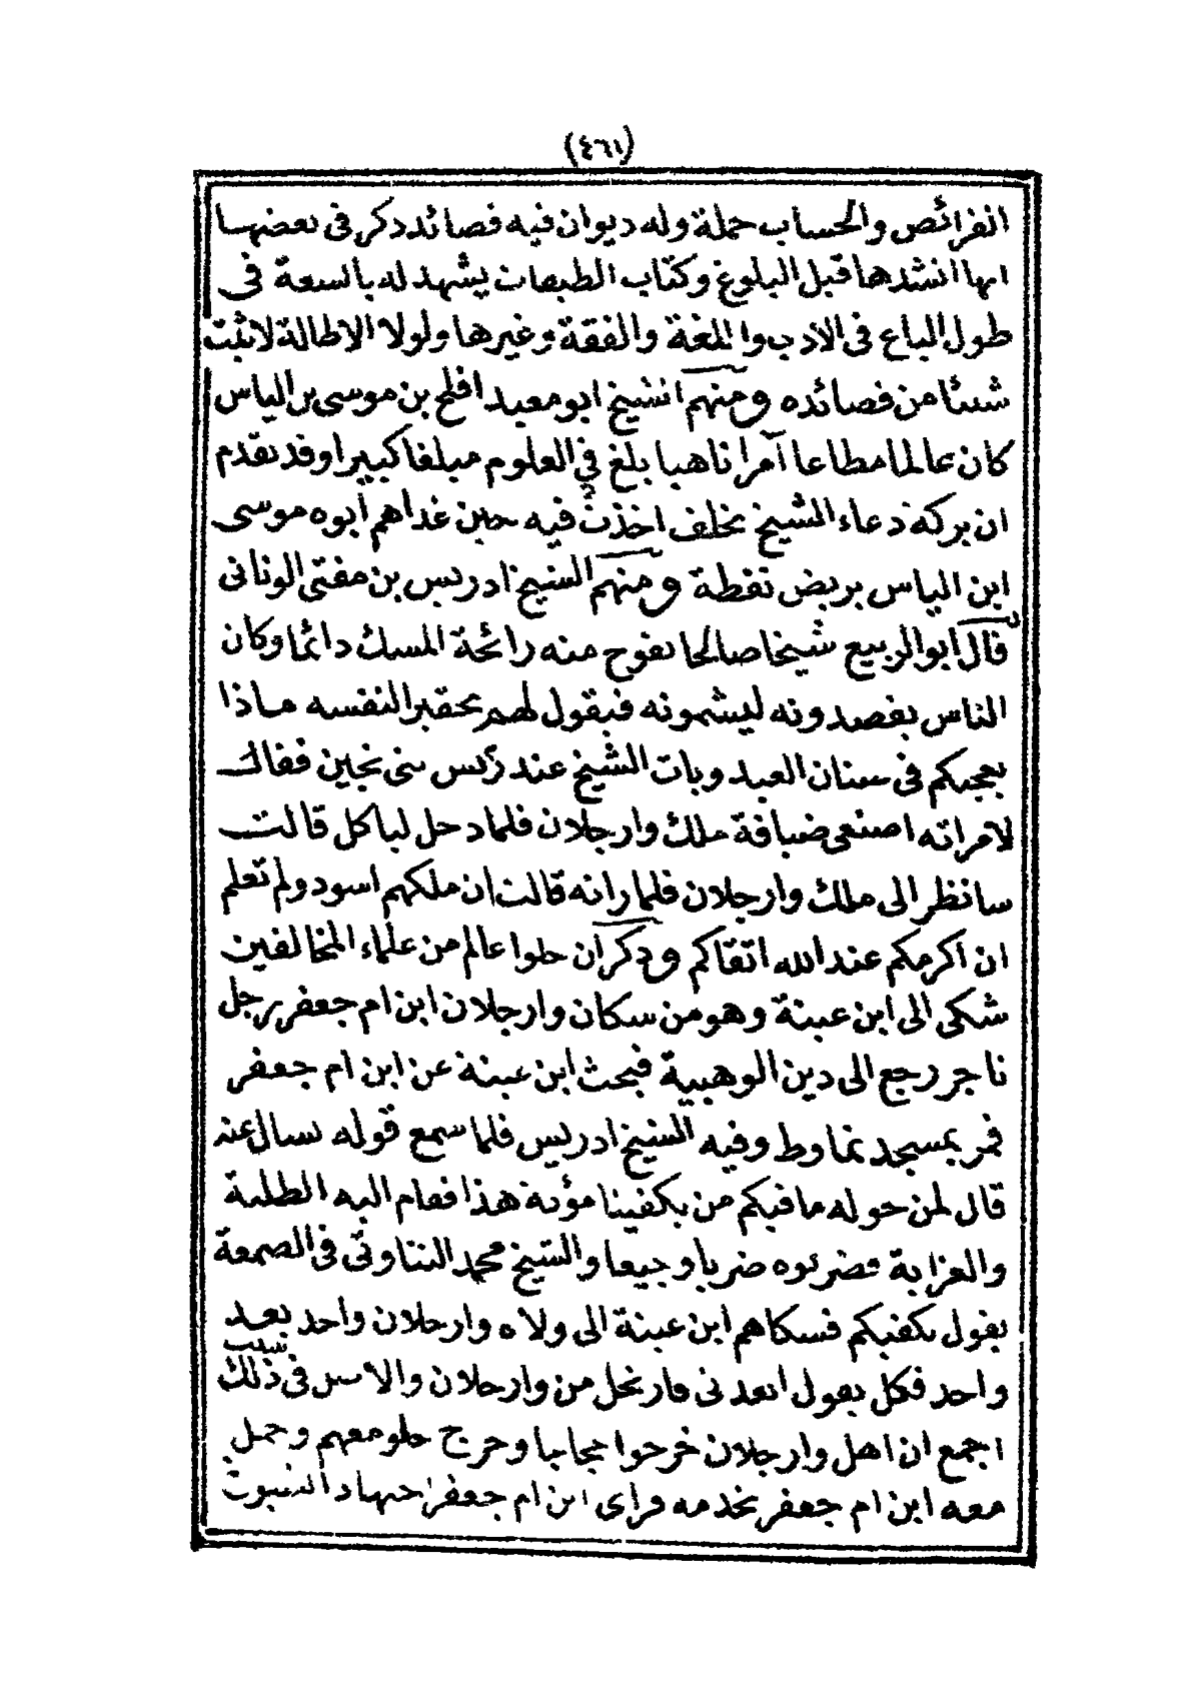 (٤٦١)
الفرائض والحساب جملة وله ديوان فيه قصائد ذكر في بعضها
انها انشدها قبل البلوغ وكتاب الطبقات يشهد له بالسعة في
طول الباع في الادب واللغة والفقة وغيرها ولولا الاطالة لاثبت
شيئا من قصائده ومنهم الشيخ ابو معبد افلح بن موسى بن الياس
كان عالما مطاعا آمرا ناهيا بلغ في العلوم مبلغا كبيرا وقد تقدم
ان بركة دعاء الشيخ يخلف اخذت فيه حين غداهم أبوه موسى
ابن الياس بربض نقطة ومنهم الشيخ ادريس بن مفتى الوناني
قال ابو الربيع شيخا صالحا يفوح منه رائحة المسك دائما وكان
الناس يقصدونه ليشمونه فيقول لهم تحقيرا لنفسه ماذا
يعجبكم في سنان العبد وبات الشيخ عند رئيس بني نجين فقال
لامراته اصنعى ضيافة ملك وارجلان فلما دخل لياكل قالت
سانظر الى ملك وارجلان فلما راته قالت ان ملكهم اسود ولم تعلم
ان اكرمكم عند الله اتقاكم وذكر ان حلوا عالم من علماء المخالفين
شكى الى ابن عبنة وهو من سكان وارجلان ابن ام جعفر رجل
تاجر رجع الى دين الوهبية فبحث ابن عبنة عن ابن ام جعفر
فمر بمسجد تماوط وفيه الشيخ ادريس فلما سمع قوله يسال عنه
قال لمن حوله ما فيكم من يكفينا مؤنة هذا فقام اليه الطلبة
والعزابة فضربوه ضربا وجيعا والشيخ محمد التناوتي في الصمعة
يقول يكفيكم فسكاهم ابن عبنة الى ولاه وارجلان واحد بعد
واحد فكل يقول ابعدني فار نخل من وارجلان والاسر في ذلك سبب
اجمع ان اهل وارجلان خرجوا حجاجا وخرج حلو معهم وجمل
معه ابن ام جعفر يخدمه فراى ابن ام جعفر اجتهاد